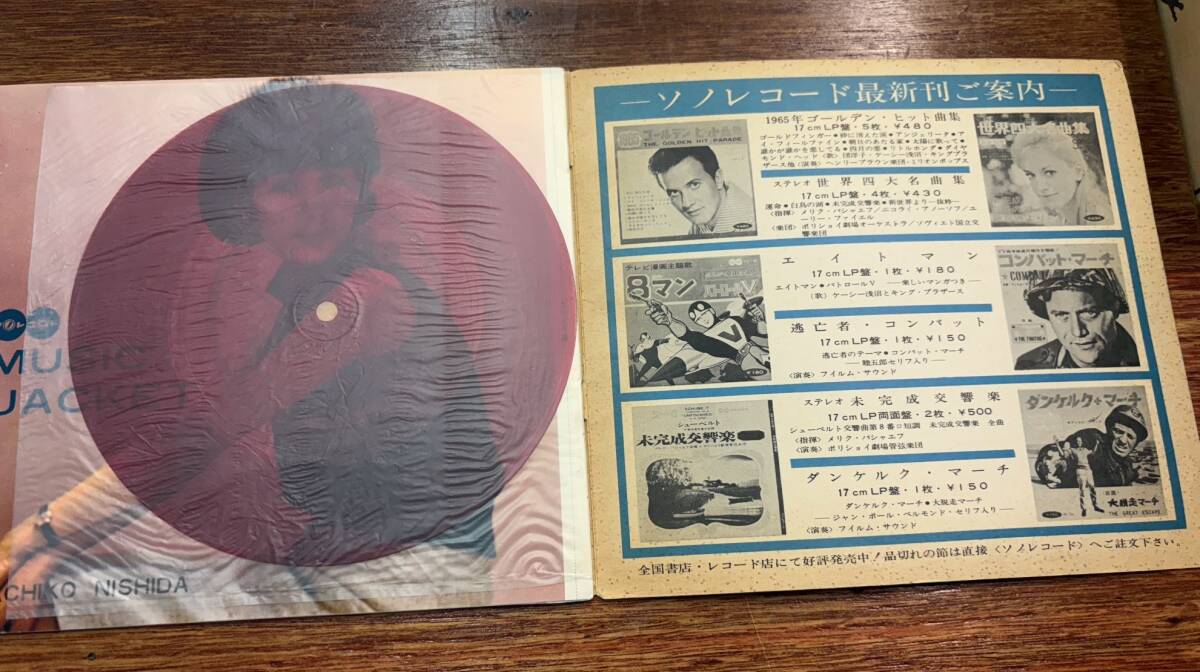 MUSIC
JACKET
CHIKO NISHIDA
—ソノレコード最新刊ご案内—
1965年ゴールデン・ヒット曲集
17cmLP盤・5枚・¥480
ゴールドフィンガー●砂に消えた涙●アンジェリータ●ア
イ・フィールファイン●朝日のあたる家●太陽に歌って●
誰かが誰かを愛してる●四月の恋●リトルホンダ●ダイヤ
モンド・ヘッド〈歌〉団洋子・ケーシー浅沼・キングブラ
ザース他〈演奏〉ヘンリーブラウン楽団・ミリオンポップス
ステレオ 世界四大名曲集
17cmLP盤・4枚・¥430
運命●白鳥の湖●未完成交響楽●新世界より—抜粋—
〈指揮〉メリク・パシャエフ/ニコライ・アノーソフ/ユ
ーリー・ファイエル
〈楽団〉ボリショイ劇場オーケストラ/ソヴィエト国立交
響楽団
ゴールデンヒット曲集
THE GOLDEN HIT PARADE
世界四大名曲集
エイトマン
17cmLP盤・1枚・¥180
エイトマン●パトロールV ——楽しいマンガつき——
〈歌〉ケーシー浅沼とキング・ブラザース
逃亡者・コンバット
17cmLP盤・1枚・¥150
逃亡者のテーマ●コンバット・マーチ
——睦五郎セリフ入り——
〈演奏〉フイルム・サウンド
テレビ漫画主題歌
8マン
パトロールV
¥180
コンバット・マーチ
ステレオ 未完成交響楽
17cmLP両面盤・2枚・¥500
シューベルト交響曲第8番ロ短調 未完成交響楽 全曲
〈指揮〉メリク・パシャエフ
〈演奏〉ボリショイ劇場管弦楽団
ダンケルク・マーチ
17cmLP盤・1枚・¥150
ダンケルク・マーチ●大脱走マーチ
——ジャン・ポール・ベルモンド・セリフ入り——
〈演奏〉フイルム・サウンド
シューベルト
未完成交響楽
ダンケルク・マーチ
大脱走マーチ
THE GREAT ESCAPE
全国書店・レコード店にて好評発売中!品切れの節は直接〈ソノレコード〉へご注文下さい。